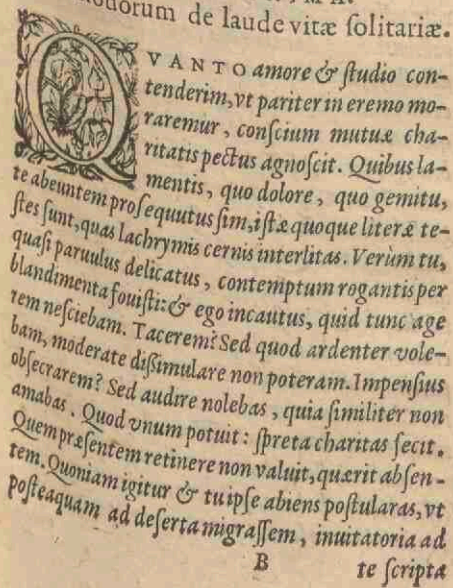 de laude vitæ ſolitariæ.
QVANTO amore & ſtudio con-
tenderim, vt pariter in eremo mo-
raremur, conſcium mutuæ cha-
ritatis pectus agnoſcit. Quibus la-
mentis, quo dolore, quo gemitu,
te abeuntem proſequutus ſim, iſtæ quoque literæ te-
ſtes ſunt, quas lachrymis cernis interlitas. Verùm tu,
quaſi paruulus delicatus, contemptum rogantis per
blandimenta fouiſti: & ego incautus, quid tunc age
rem neſciebam. Tacerem? Sed quod ardenter vole-
bam, moderate diſſimulare non poteram. Impenſius
obſecrarem? Sed audire nolebas, quia ſimiliter non
amabas. Quod vnum potuit: ſpreta charitas fecit.
Quem præſentem retinere non valuit, quærit abſen-
tem. Quoniam igitur & tu ipſe abiens poſtularas, vt
poſteaquam ad deſerta migraſſem, inuitatoria ad
B
te ſcripta